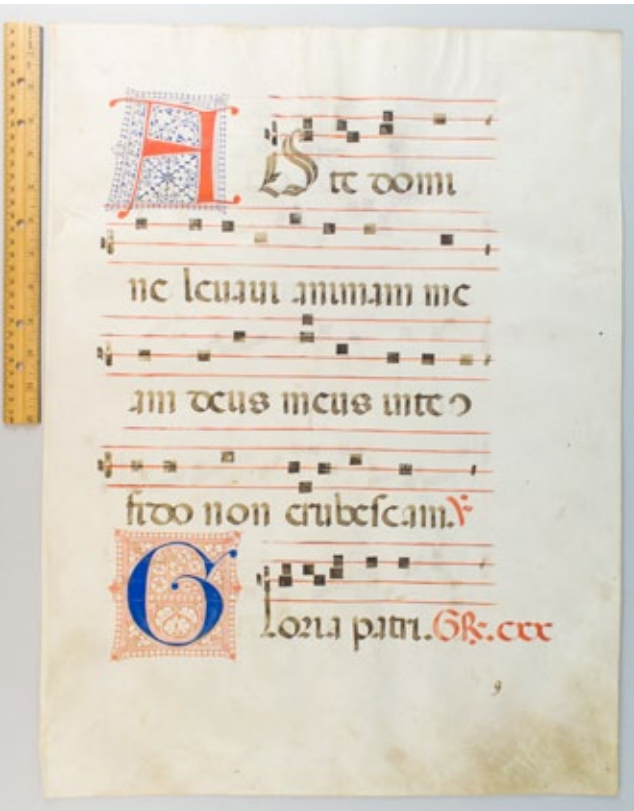 A ES te domi
ne levavi animam me
am deus meus in te co
fido non erubescam. V.
Gloria patri. GR. cxx
9